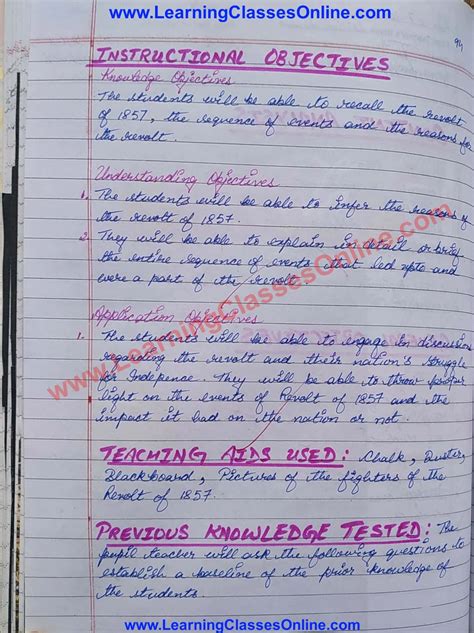 www.LearningClassesOnline.com
94
INSTRUCTIONAL OBJECTIVES
Knowledge Objectives
The students will be able to recall the revolt
of 1857, the sequence of events and the reasons for
the revolt.
Understanding Objectives
1. The students will be able to infer the reasons of
the revolt of 1857.
2. They will be able to explain in detail or brief
the entire sequence of events that led upto and
were a part of the revolt.
Application Objectives
1. The students will be able to engage in discussion
regarding the revolt and their nation's struggle
for Indepence. They will be able to throw proper
light on the events of Revolt of 1857 and the
impact it had on the nation or not.
www.LearningClassesOnline.com
TEACHING AIDS USED: Chalk, Duster,
Blackboard, Pictures of the fighters of the
Revolt of 1857.
PREVIOUS KNOWLEDGE TESTED: The
pupil teacher will ask the following questions to
establish a baseline of the prior knowledge of
the students.
www.LearningClassesOnline.com